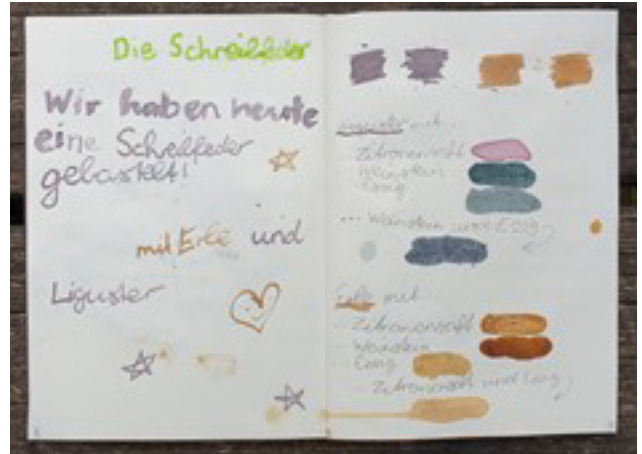 Die Schreibfeder
Wir haben heute
eine Schreibfeder
gebastelt!
mit Erle und
Liguster
Liguster mit ...
... Zitronensaft
... Weinstein
... Essig
... Weinstein und Essig
Erle mit
... Zitronensaft
... Weinstein
... Essig
... Zitronensaft und Essig